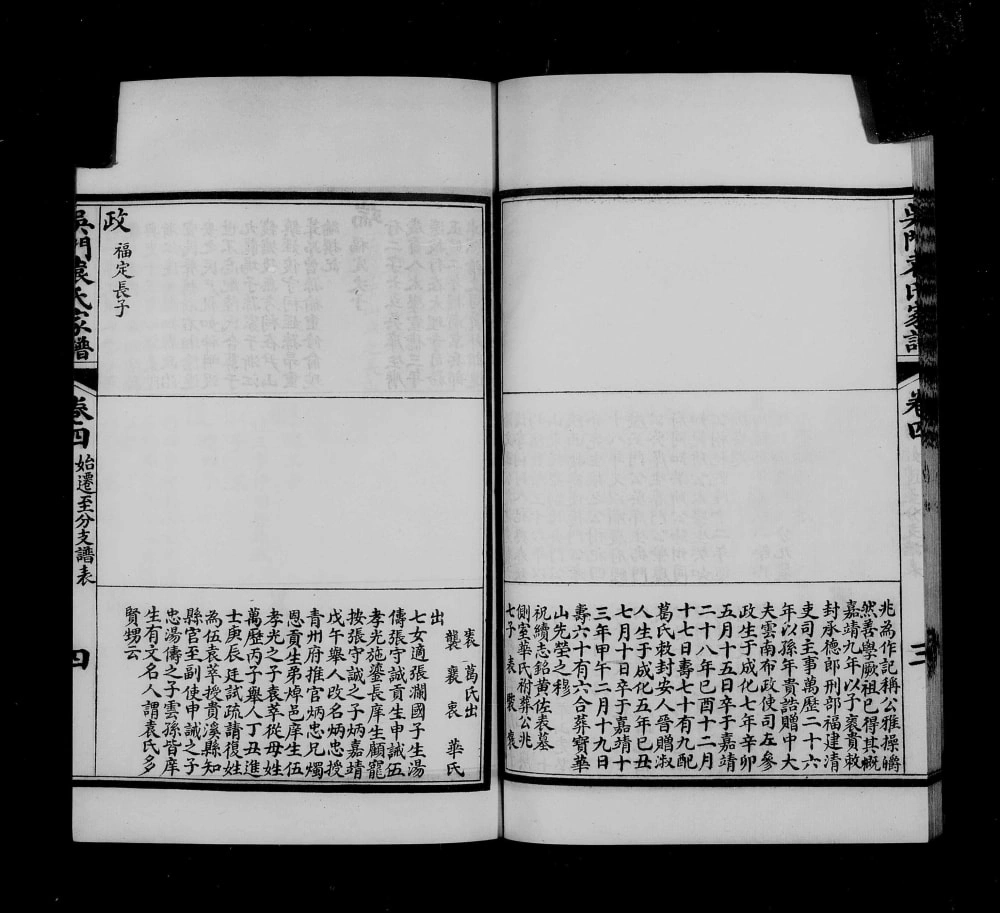 吳門袁氏家譜
卷四
三
兆為作記稱公雅操皭
然善學厥祖已得其概
嘉靖九年以子袠貴敕
封承德郎刑部福建清
吏司主事萬歷二十六
年以孫年貴誥贈中大
夫雲南布政使司左參
政生于成化七年辛卯
五月十五日卒于嘉靖
二十八年己酉十二月
十七日壽七十有九配
葛氏敕封安人晉贈淑
人生于成化五年己丑
七月十日卒于嘉靖十
三年甲午二月十九日
壽六十有六合葬寶華
山先塋之穆
祝續志銘黃佐表墓
側室華氏祔葬公兆
七子 表 褧 褒
袠 葛氏出
襲 裹 衷 華氏
出
七女適張瀾國子生湯
傳張守誠貢生申誠伍
孝光施鎏長庠生顧寵
按張守誠之子炳嘉靖
戊午舉人改名炳忠授
青州府推官炳忠兄燭
恩貢生弟焯邑庠生伍
孝光之子袁萃從母姓
萬歷丙子舉人丁丑進
士庚辰廷試疏請復姓
為伍袁萃授貴溪縣知
縣官至副使申誠之子
忠湯傳之子雲孫皆庠
生有文名人謂袁氏多
賢甥云
政 福定長子
吳門袁氏家譜
卷四
始遷至分支譜表
四